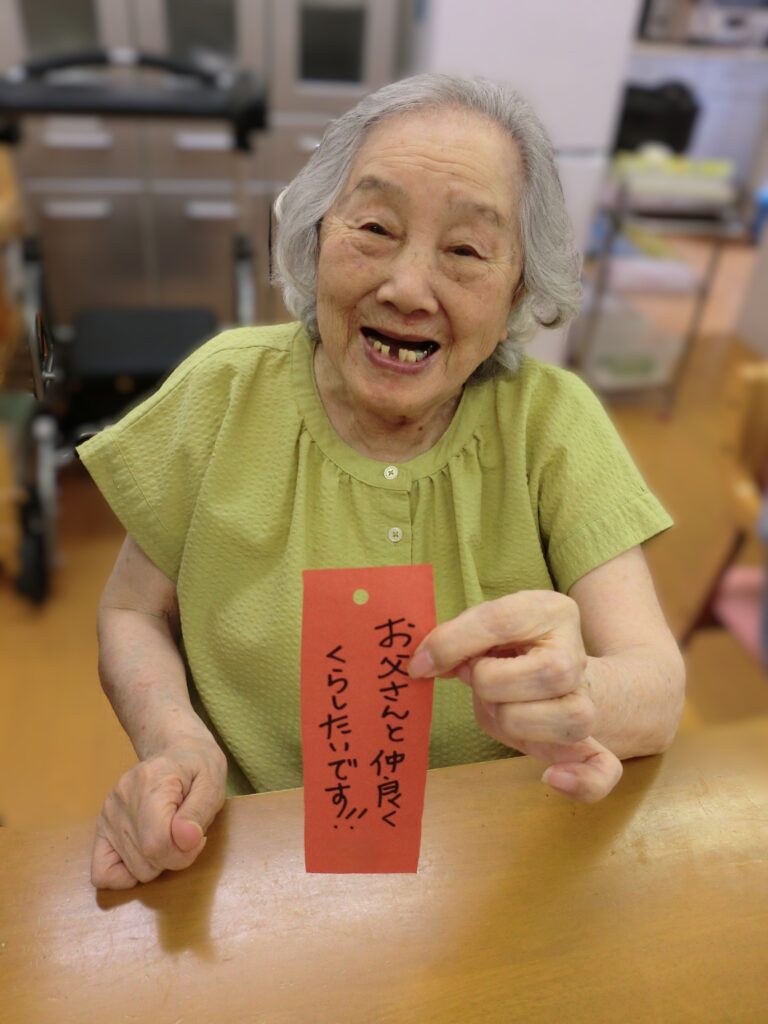 お父さんと仲良く
くらしたいです!!